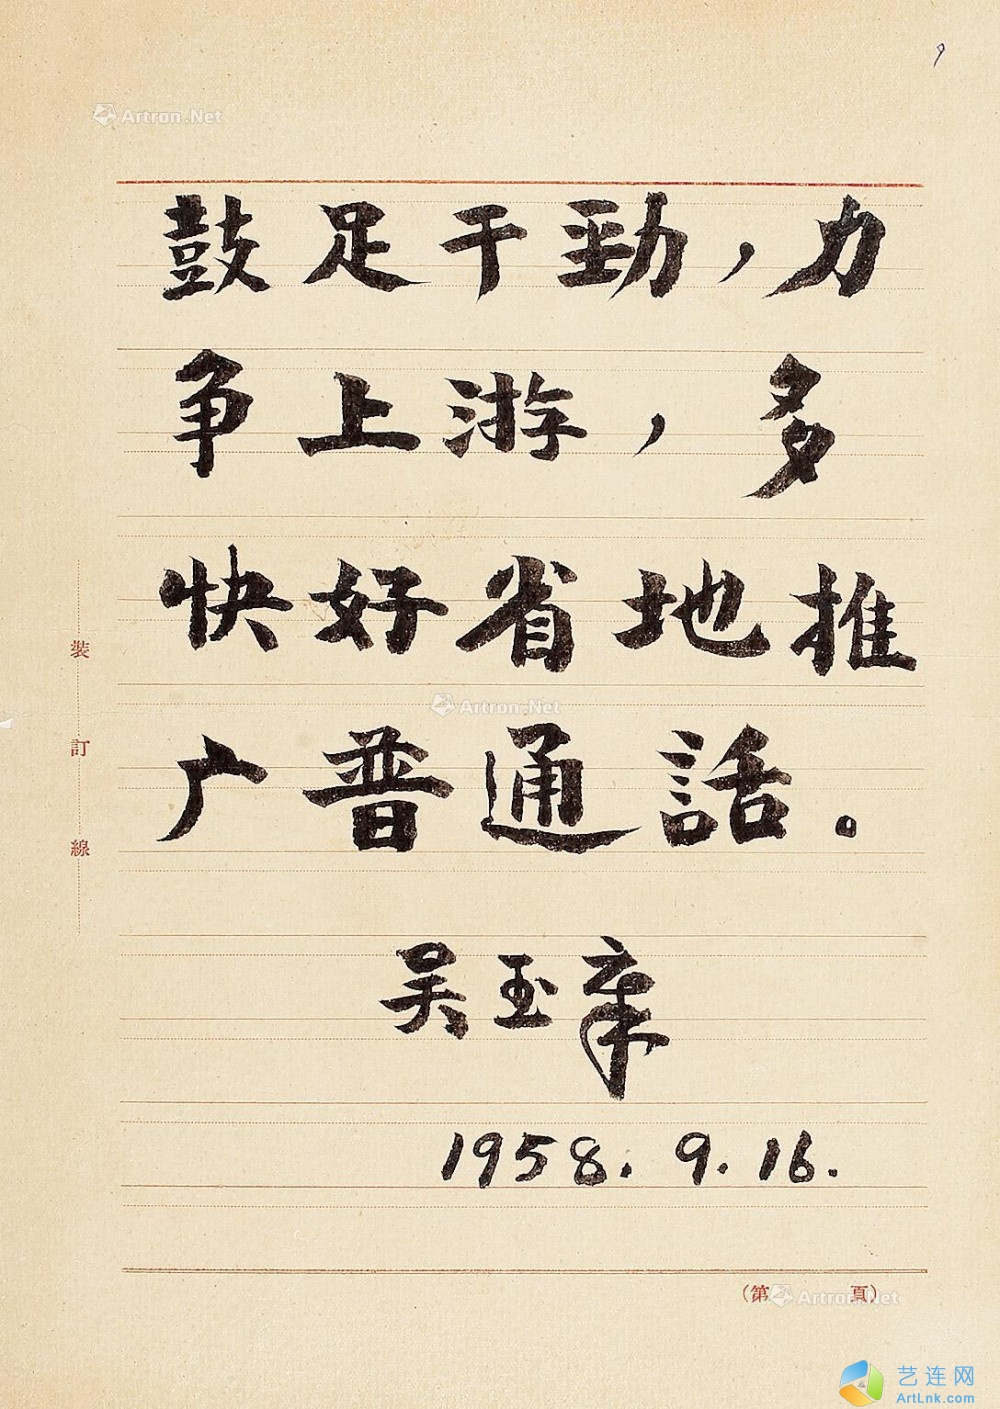 9
Artron.Net
鼓足干劲，力
争上游，多
快好省地推
广普通話。
吴玉章
1958.9.16.
装訂線
Artron.Net
（第 頁）
Artron.Net
艺连网
ArtLnk.com